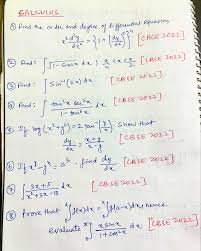 CALCULUS
① Find the order and degree of differential equation
x² d²y/dx² = {1 + (dy/dx)²}⁴ [CBSE 2022]
② Find: ∫ √(1 - sin 2x) dx ; π/4 < x < π/2 [CBSE 2022]
③ Find: ∫ sin⁻¹(2x) dx. [CBSE 2022]
④ Find: ∫ tan²x sec²x / 1 - tan⁶x dx [CBSE 2022]
⑤ If log(x²+y²) = 2 tan⁻¹(y/x), show that
dy/dx = x+y / x-y [CBSE 2022]
⑥ If xʸ - yˣ = aᵇ - find dy/dx [CBSE 2022]
⑦ ∫ 3x+5 / x²+3x-18 dx [CBSE 2022]
⑧ Prove that ₀∫ᵃ f(x)dx = ₀∫ᵃ f(a-x)dx, hence
evaluate ₀∫^π x sinx / 1+cos²x dx [CBSE 2022]